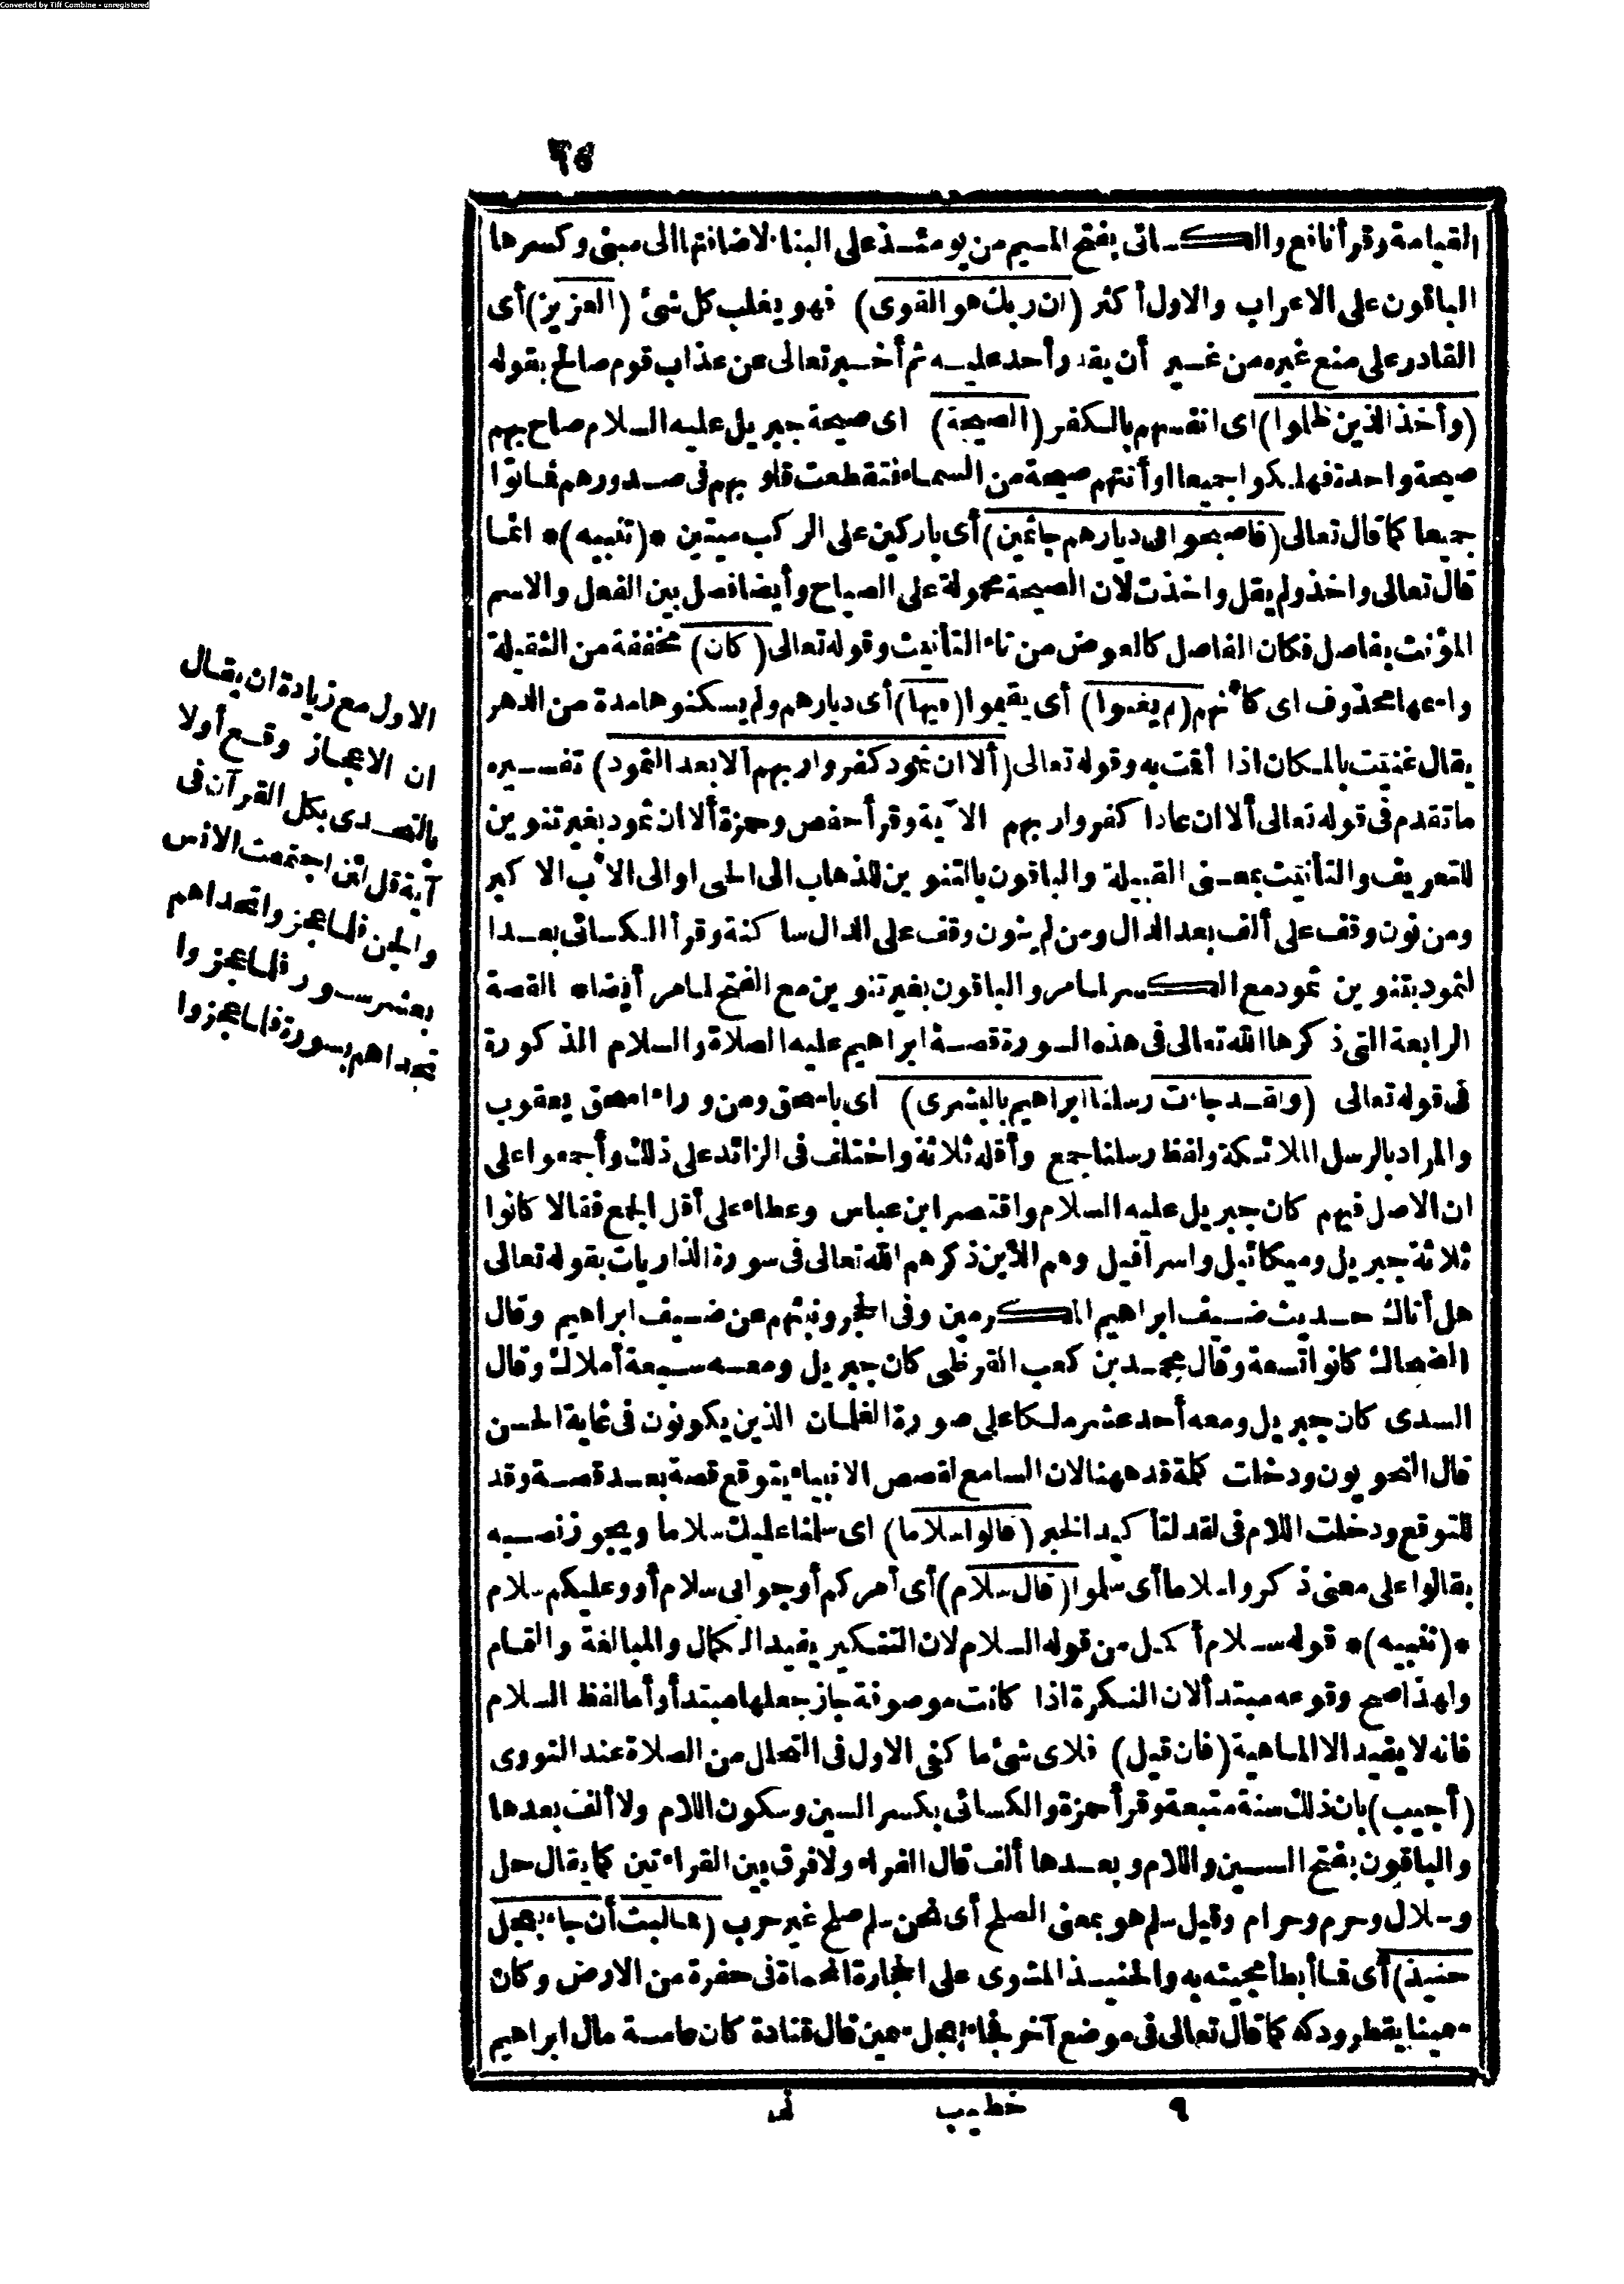 Converted by Tiff Combine - unregistered
٦٥
القيامة وقرأ نافع والكسائى بفتح الميم من يومئذ على البناء لاضافتها الى مبنى وكسرها
الباقون على الاعراب والاول أكثر (ان ربك هو القوى) فهو يغلب كل شئ (العزيز) أى
القادر على منع غيره من غير أن يقدر أحد عليه ثم أخبر تعالى عن عذاب قوم صالح بقوله
(وأخذ الذين ظلوا) اى انفسهم بالكفر (الصيحة) اى صيحة جبريل عليه السلام صاح بهم
صيحة واحدة فهلكوا جميعا او أتتهم صيحة من السماء فتقطعت قلوبهم فى صدورهم فماتوا
جميعا كما قال تعالى (فاصبحوا فى ديارهم جاثمين) أى باركين على الركب ميتين *(تنبيه)* انما
قال تعالى واخذ ولم يقل واخذت لأن الصيحة محمولة على الصياح وأيضا فصل بين الفعل والاسم
المؤنث بفاصل فكان الفاصل كالعوض من تاء التأنيث وقوله تعالى (كان) مخففة من الثقيلة
واسمها محذوف اى كأنهم (لم يغنوا) أى يقيموا (فيها) أى ديارهم ولم يسكنوها مدة من الدهر
يقال غنيت بالمكان اذا أقت به وقوله تعالى (ألا ان ثمود كفروا ربهم ألا بعد الثمود) تفسيره
ما تقدم فى قوله تعالى ألا ان عادا كفروا ربهم الآية وقرأ حفص وحمزة ألا ان ثمود بغير تنوين
للتعريف والتأنيث بمعنى القبيلة والباقون بالتنوين للذهاب الى الحى او الى الأب الاكبر
ومن نون وقف على ألف بعد الدال ومن لم ينون وقف على الدال ساكنة وقرأ الكسائى بعدا
لثمود بتنوين ثمود مع الكسر لما مر والباقون بغير تنوين مع الفتح لما مر أيضا* القصة
الرابعة التى ذكرها الله تعالى فى هذه السورة قصة ابراهيم عليه الصلاة والسلام المذكورة
فى قوله تعالى (ولقد جاءت رسلنا ابراهيم بالبشرى) اى باسحق ومن وراء اسحق يعقوب
والمراد بالرسل الملائكة ولفظ رسلنا جمع وأقله ثلاثة واختلف فى الزائد على ذلك وأجمعوا على
ان الاصل فيهم كان جبريل عليه السلام واقتصر ابن عباس وعطاء على أقل الجمع فقالا كانوا
ثلاثة جبريل وميكائيل واسرافيل وهم الذين ذكرهم الله تعالى فى سورة الذاريات بقوله تعالى
هل أتاك حديث ضيف ابراهيم المكرمين وفى الحجر ونبئهم عن ضيف ابراهيم وقال
الضحاك كانوا تسعة وقال محمد بن كعب القرظى كان جبريل ومعه سبعة أملاك وقال
السدى كان جبريل ومعه أحد عشر ملكا على صورة الغلمان الذين يكونون فى غاية الحسن
قال النحويون ودخلت كلمة قد ههنا لان السامع لقصص الانبياء يتوقع قصة بعد قصة وقد
للتوقع ودخلت اللام فى لقد لتأكيد الخبر (قالوا سلاما) اى سلمنا عليك سلاما ويجوز نصبه
بقالوا على معنى ذكروا سلاما أى سلموا (قال سلام) أى أمركم أو جوابى سلام أو وعليكم سلام
*(تنبيه)* قوله سلام أكمل من قوله السلام لان التنكير يفيد الكمال والمبالغة والتمام
ولهذا صح وقوعه مبتدأ لان النكرة اذا كانت موصوفة جاز جعلها مبتدأ وأما لفظ السلام
فانه لا يفيد الا الماهية (فان قيل) فلاى شئ ما كفى الاول فى التحلل من الصلاة عند النووى
(أجيب) بان ذلك سنة متبعة وقرأ حمزة والكسائى بكسر السين وسكون اللام ولا ألف بعدها
والباقون بفتح السين واللام وبعدها ألف قال الفراء ولا فرق بين القراءتين كما يقال حل
وحلال وحرم وحرام وقيل سلم هو بمعنى الصلح أى نحن سلم صلح غير حرب (فما لبث أن جاء بعجل
حنيذ) أى فما أبطأ مجيئه به والحنيذ المشوى على الحجارة المحماة فى حفرة من الارض وكان
سمينا يقطر ودكه كما قال تعالى فى موضع آخر فجاء بعجل سمين قال قتادة كان عامة مال ابراهيم
٩ خطيب نى
الاول مع زيادة ان يقال
ان الاعجاز وقع أولا
بالتحدى بكل القرآن فى
آية قل لئن اجتمعت الانس
والجن فلما عجزوا تحداهم
بعشر سور فلما عجزوا
تحداهم بسورة فلما عجزوا